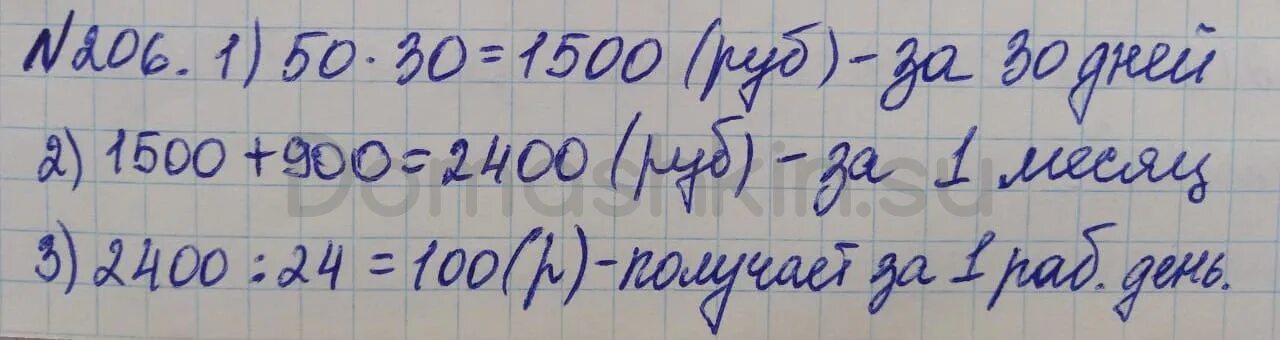 №206. 1) 50·30=1500 (руб) - за 30 дней
2) 1500+900=2400 (руб) - за 1 месяц
Domashkin.su
3) 2400:24=100(р)-получает за 1 раб. день.